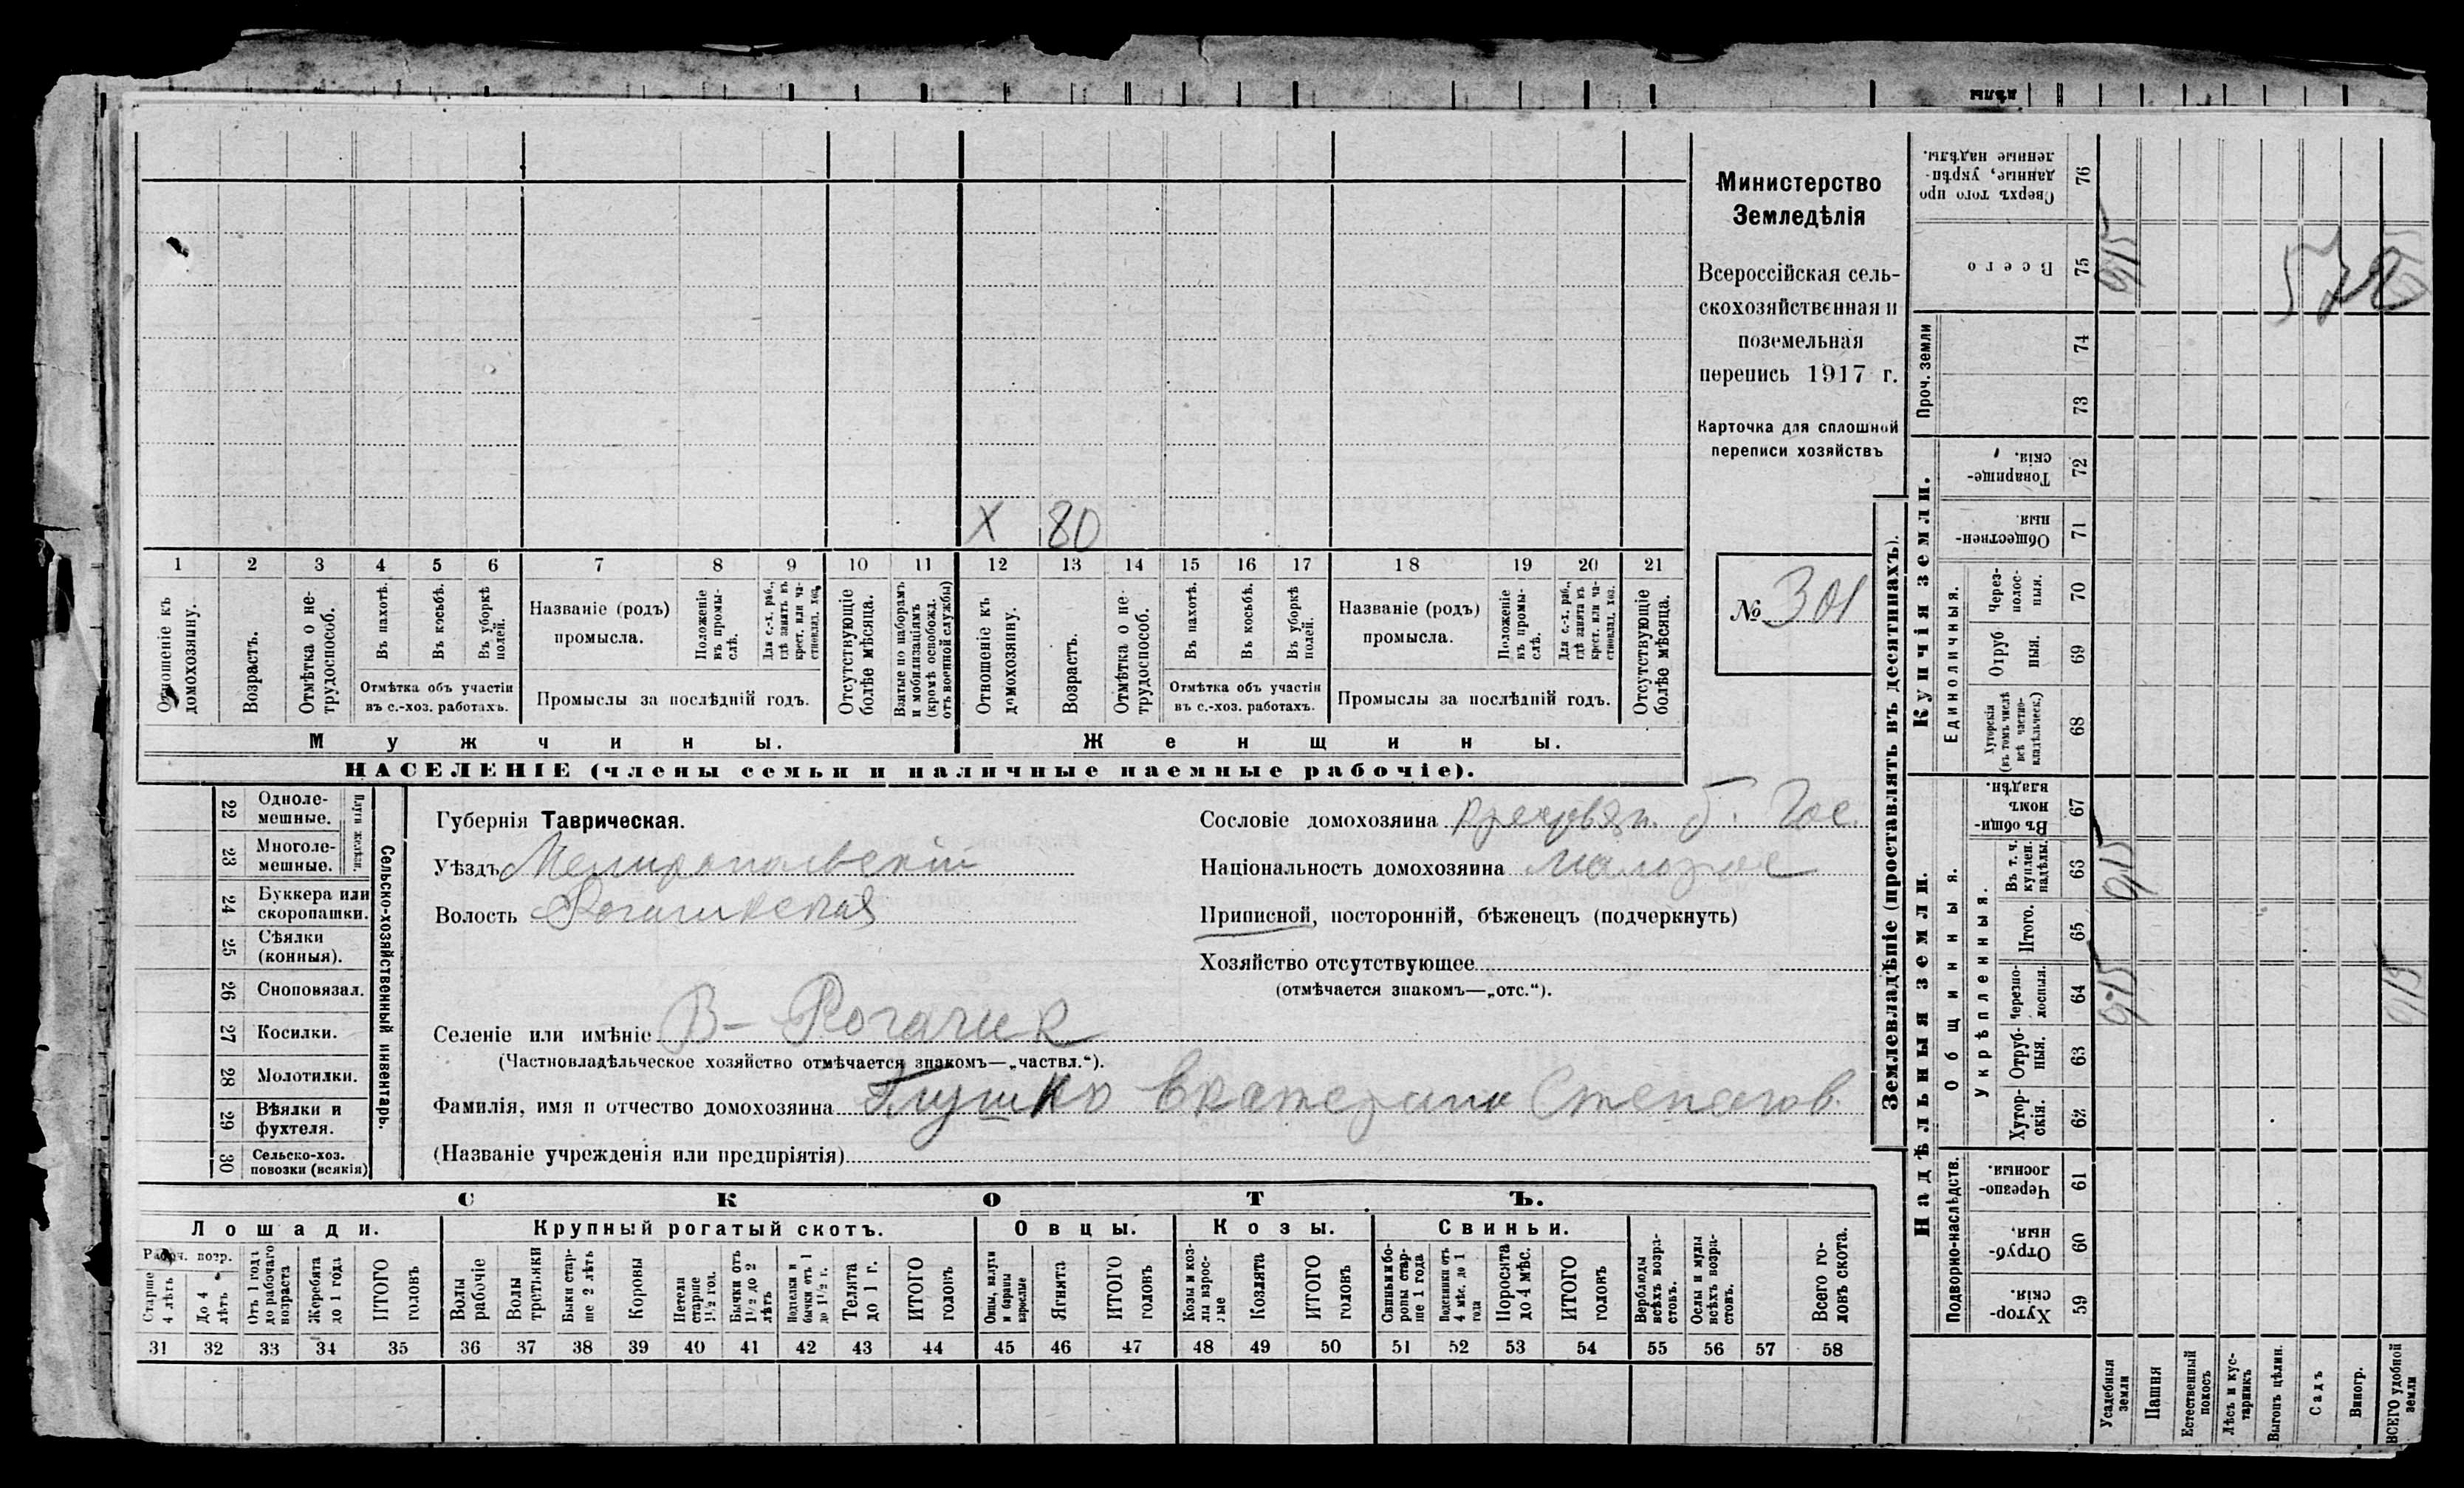 Министерство
Земледѣлія
Всероссійская сель-
скохозяйственная и
поземельная
перепись 1917 г.
Карточка для сплошной
переписи хозяйствъ
№ 301
X 80
1 2 3 4 5 6 7 8 9 10 11 12 13 14 15 16 17 18 19 20 21
Отношеніе къ домохозяину.
Возрастъ.
Отмѣтка о не-
трудоспособ.
Въ пахотѣ.
Въ косьбѣ.
Въ уборкѣ полей.
Отмѣтка объ участіи
въ с.-хоз. работахъ.
Названіе (родъ)
промысла.
Положеніе въ промы-
слѣ.
Для с.-х. раб., гдѣ занятъ въ крест. или ча-
стновлад. хоз.
Промыслы за послѣдній годъ.
Отсутствующіе болѣе мѣсяца.
Взятые по наборамъ и мобилизаціямъ (кромѣ освобожд. отъ военной службы)
Отношеніе къ домохозяину.
Возрастъ.
Отмѣтка о не-
трудоспособ.
Въ пахотѣ.
Въ косьбѣ.
Въ уборкѣ полей.
Отмѣтка объ участіи
въ с.-хоз. работахъ.
Названіе (родъ)
промысла.
Положеніе въ промы-
слѣ.
Для с.-х. раб., гдѣ занята въ крест. или ча-
стновлад. хоз.
Промыслы за послѣдній годъ.
Отсутствующіе болѣе мѣсяца.
Мужчины.
Женщины.
НАСЕЛЕНІЕ (члены семьи и наличные наемные рабочіе).
Сельско-хозяйственный инвентарь.
Плуги желѣзн.
22 Однолемешные.
23 Многолемешные.
24 Буккера или скоропашки.
25 Сѣялки (конныя).
26 Сноповязал.
27 Косилки.
28 Молотилки.
29 Вѣялки и фухтеля.
30 Сельско-хоз. повозки (всякія)
Губернія Таврическая.
Уѣздъ Мелитопольскій
Волость Рогачикская
Сословіе домохозяина б. Гос.
Національность домохозяина Малорос
Приписной, посторонній, бѣженецъ (подчеркнуть)
Хозяйство отсутствующее
(отмѣчается знакомъ—„отс.“).
Селеніе или имѣніе В- Рогачик
(Частновладѣльческое хозяйство отмѣчается знакомъ—„частвл.“).
Фамилія, имя и отчество домохозяина Глушко Екатерина Степанов.
(Названіе учрежденія или предпріятія)
СКОТЪ.
Лошади. Крупный рогатый скотъ. Овцы. Козы. Свиньи.
Рабоч. возр.
Старше 4 лѣтъ
До 4 лѣтъ
Отъ 1 года до рабочаго возраста
Жеребята до 1 года
ИТОГО головъ
Волы рабочіе
Волы третьяки
Быки старше 2 лѣтъ
Коровы
Нетели старше 1½ год.
Бычки отъ 1½ до 2 лѣтъ
Подтелки и бычки отъ 1 до 1½ г.
Телята до 1 г.
ИТОГО головъ
Овцы, валухи и бараны взрослые
Ягнята
ИТОГО головъ
Козы и козлы взрослые
Козлята
ИТОГО головъ
Свиньи и боровы старше 1 года
Подсвинки отъ 4 мѣс. до 1 года
Поросята до 4 мѣс.
ИТОГО головъ
Верблюды всѣхъ возрастовъ.
Ослы и мулы всѣхъ возрастовъ.
Всего головъ скота.
31 32 33 34 35 36 37 38 39 40 41 42 43 44 45 46 47 48 49 50 51 52 53 54 55 56 57 58
Землевладѣніе (проставлять въ десятинахъ).
Надѣльныя земли.
Купчія земли.
Проч. земли
Подворно-наслѣдств.
Общинныя.
Укрѣпленныя.
Единоличныя.
59 Хуторскія.
60 Отрубныя.
61 Черезполосныя.
62 Хуторскія.
63 Отрубныя.
64 Черезполосныя. 0,15 0,15
65 Итого.
66 Въ т. ч. куплен. надѣлы. 0,15
67 Въ общинномъ владѣн.
68 Хуторскія (въ томъ числѣ всѣ частновладѣльческ.)
69 Отрубныя.
70 Черезполосныя.
71 Общественныя.
72 Товарищескія.
73
74
75 Всего 0,15
76 Сверхъ того проданные, укрѣпленные надѣлы.
Усадебныя земли
Пашня
Естественный покосъ
Лѣсъ и кустарникъ
Выгонъ цѣлин.
Садъ
Виногр.
ВСЕГО удобной земли